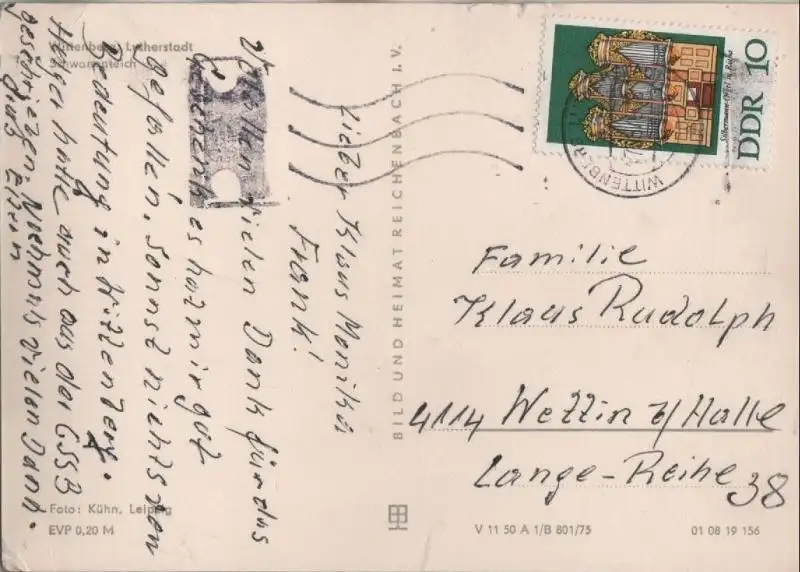 Wittenberg Lutherstadt
Schwanenteich
Lieber Klaus Monika
Frank!
Wollen vielen Dank für das
es hat mir gut
gefallen. Sonnst nichts von
Bedeutung in Wittenberg.
Holger hatte auch aus der ČSSR
geschrieben. Nochmals vielen Dank.
Eltern
Foto: Kühn, Leipzig
EVP 0,20 M
BILD UND HEIMAT REICHENBACH I. V.
V 11 50 A 1/B 801/75
01 08 19 156
DDR 10
WITTENBERG
Familie
Klaus Rudolph
4114 Wettin b/Halle
Lange-Reihe 38